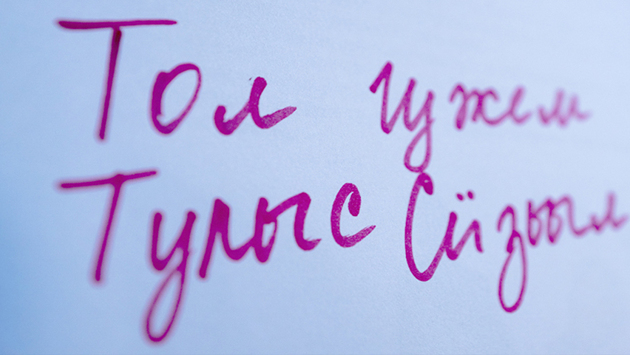 Тол гужем
Тулыс Сӥзьыл